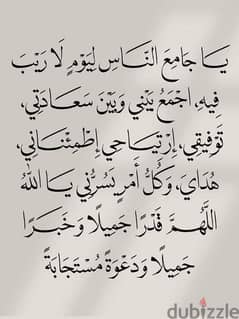 يَا جَامِعَ النَّاسِ لِيَوْمٍ لَا رَيْبَ
فِيهِ، اِجْمَعْ بَيْنِي وَبَيْنَ سَعَادَتِي،
تَوْفِيقِي، اِرْتِيَاحِي اِطْمِئْنَانِي،
هُدَايَ، وَكُلُّ أَمْرٍ يَسُرُّنِي يَا اللّٰه
اللَّهُمَّ قَدَرًا جَمِيلًا وَخَبَرًا
جَمِيلًا وَدَعْوَةً مُسْتَجَابَةً
dubizzle